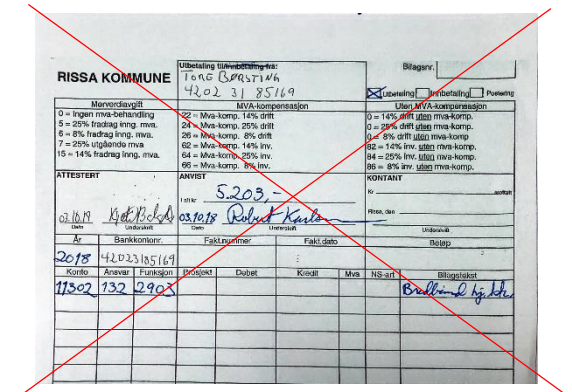 Utbetaling til/innbetaling fra:
Bilagsnr.
RISSA KOMMUNE
TORE BØRSTING
4202 31 85169
Utbetaling Innbetaling Postering
Merverdiavgift
MVA-kompensasjon
Uten MVA-kompensasjon
0 = Ingen mva-behandling
22 = Mva-komp. 14% drift
0 = 14% drift uten mva-komp.
5 = 25% fradrag inng. mva.
24 = Mva-komp. 25% drift
0 = 25% drift uten mva-komp.
6 = 8% fradrag inng. mva.
26 = Mva-komp. 8% drift
0 = 8% drift uten mva-komp.
7 = 25% utgående mva
62 = Mva-komp. 14% inv.
82 = 14% inv. uten mva-komp.
15 = 14% fradrag inng. mva.
64 = Mva-komp. 25% inv.
84 = 25% inv. uten mva-komp.
66 = Mva-komp. 8% inv.
86 = 8% inv. uten mva-komp.
ATTESTERT
ANVIST
KONTANT
I alt kr 5.203,-
Kr mottatt
Rissa, den
03.10.18 Robert Karlsen
Dato Underskrift
Dato Underskrift
Underskrift
År Bankkontonr. Fakt.nummer Fakt.dato Beløp
2018 42023185169
Konto Ansvar Funksjon Prosjekt Debet Kredit Mva NS-art Bilagstekst
11302 132 2903 Bredbånd